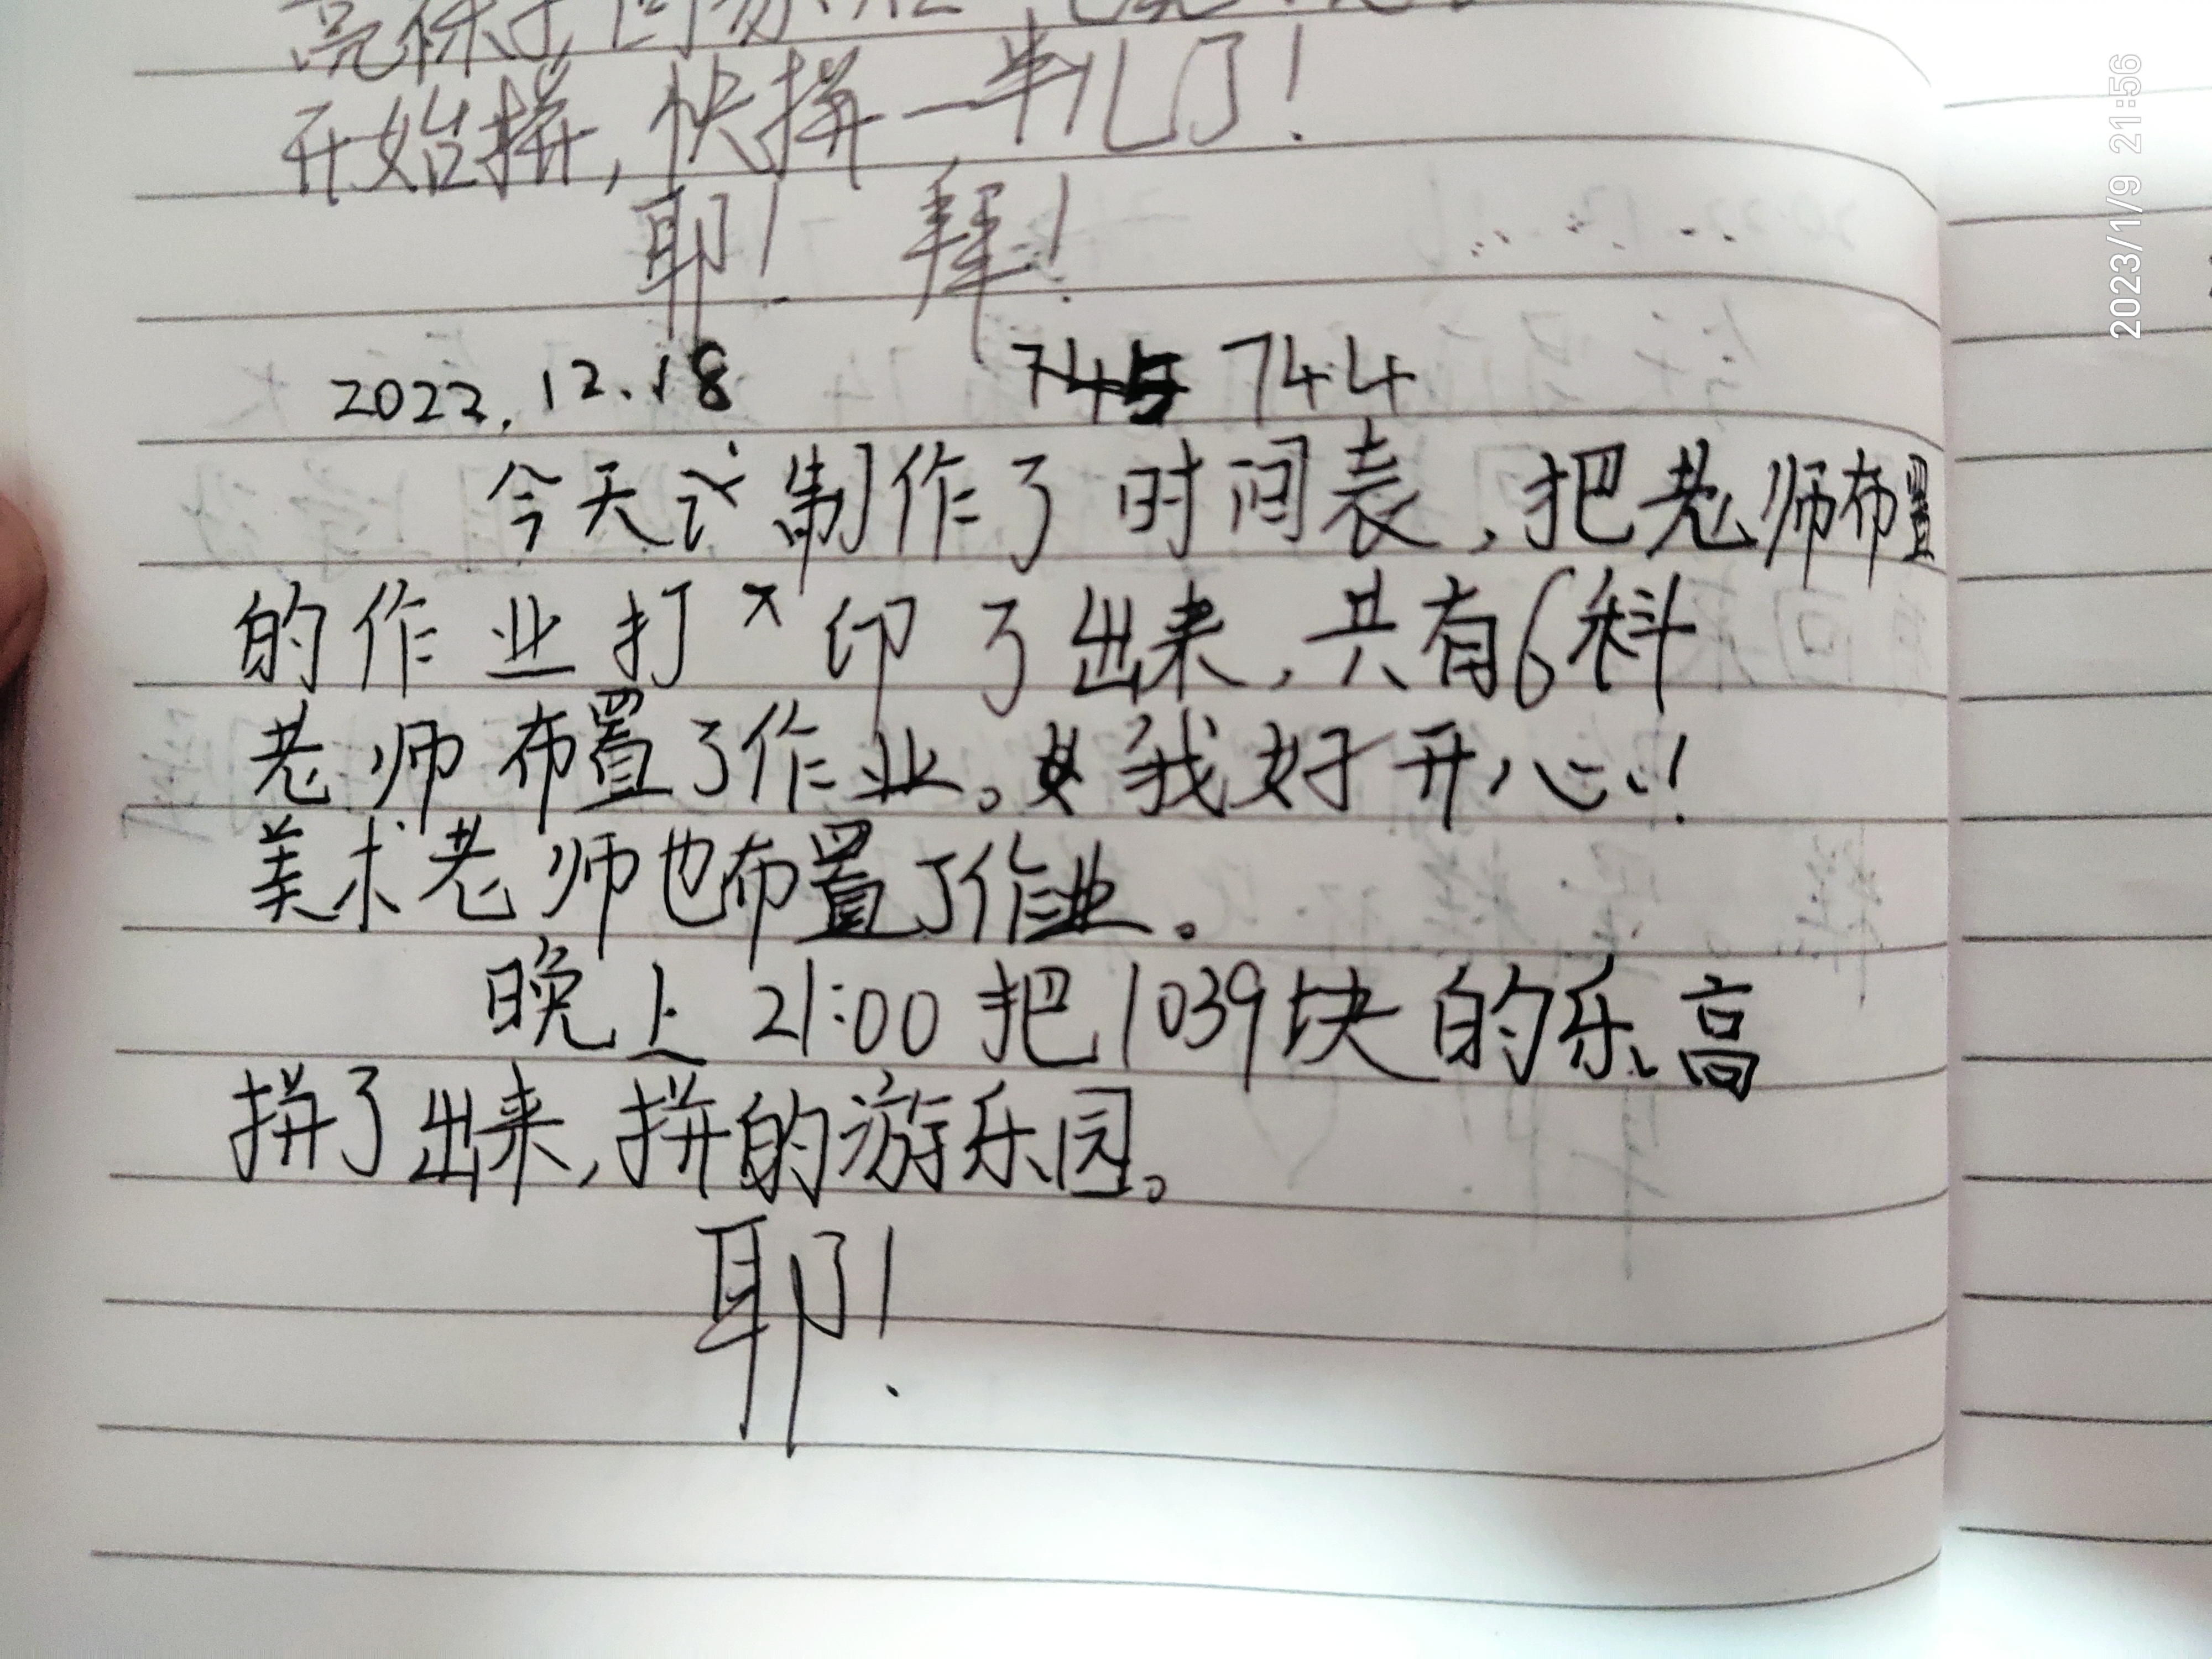 开始拼，快拼一半儿了！
耶！ 拜！
2022.12.18 745 744
今天 制作了时间表，把老师布置
的作业打印了出来，共有6科
老师布置了作业。我好开心！
美术老师也布置了作业。
晚上21:00把1039块的乐高
拼了出来，拼的游乐园。
耶！
2023/1/9 21:56